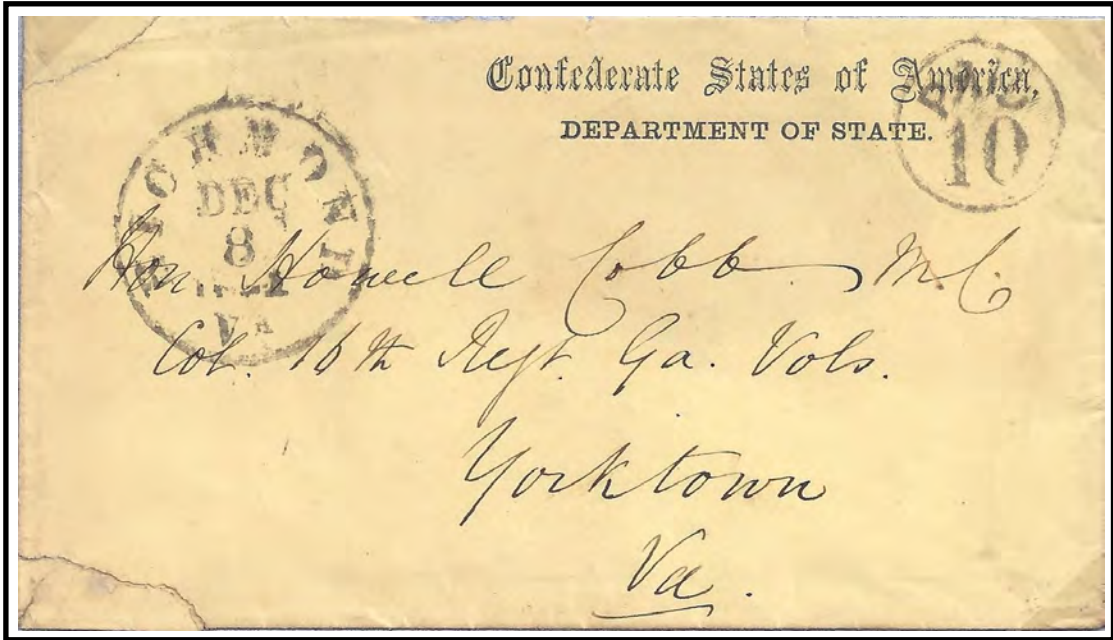 Confederate States of America,
DEPARTMENT OF STATE.
PAID
10
RICHMOND
DEC
8
1861
Va
Hon. Howell Cobb M.C.
Col. 16th Regt. Ga. Vols.
Yorktown
Va.